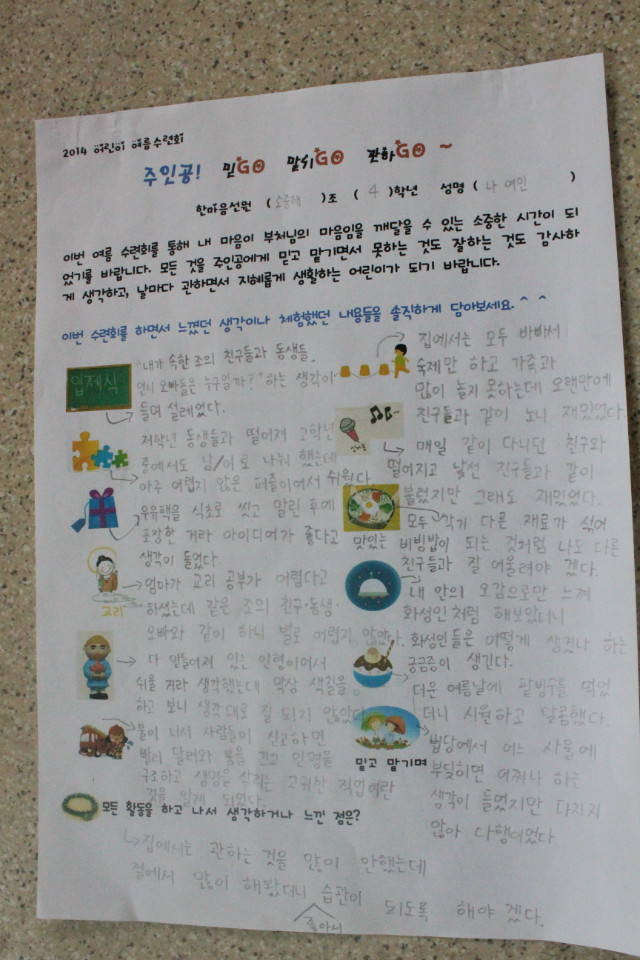 2014 어린이 여름수련회
주인공! 믿GO 맡기GO 관하GO ~
한마음선원 ( )조 ( 4 )학년 성명 ( 나 여민 )
이번 여름 수련회를 통해 내 마음이 부처님의 마음임을 깨달을 수 있는 소중한 시간이 되
었기를 바랍니다. 모든 것을 주인공에게 믿고 맡기면서 못하는 것도 잘하는 것도 감사하
게 생각하고, 날마다 관하면서 지혜롭게 생활하는 어린이가 되기 바랍니다.
이번 수련회를 하면서 느꼈던 생각이나 체험했던 내용들을 솔직하게 담아보세요.^ ^
입제식
"내가 속한 조의 친구들과 동생들,
언니 오빠들은 누구일까?"하는 생각이
들며 설레었다.
저학년 동생들과 떨어져 고학년
중에서도 남/여로 나눠 했는데
아주 어렵지 않은 퍼즐이어서 쉬웠다
우유팩을 식초로 씻고 말린 후에
포장한 거라 아이디어가 좋다고
생각이 들었다.
교리
엄마가 교리 공부가 어렵다고
하셨는데 같은 조의 친구·동생·
오빠와 같이 하니 별로 어렵지 않았다.
다 만들어져 있는 인형이어서
쉬울 거라 생각했는데 막상 색칠을
하고 보니 생각대로 잘 되지 않았다
불이 나서 사람들이 신고하면
빨리 달려와 불을 끄고 인명을
구조하고 생명을 살리는 고귀한 직업이란
것을 알게 되었다.
집에서는 모두 바빠서
숙제만 하고 가족과
많이 놀지 못하는데 오랜만에
친구들과 같이 노니 재밌었다
매일 같이 다니던 친구와
떨어지고 낯선 친구들과 같이
불렀지만 그래도 재밌었다.
모두 각기 다른 재료가 섞여
맛있는 비빔밥이 되는 것처럼 나도 다른
친구들과 잘 어울려야 겠다.
내 안의 오감으로만 느껴
화성인처럼 해보았더니
화성인들은 어떻게 생겼나 하는
궁금증이 생긴다.
더운 여름날에 팥빙수를 먹었
더니 시원하고 달콤했다.
믿고 맡기며
법당에서 어느 사물에
부딪히면 어쩌나 하는
생각이 들었지만 다치지
않아 다행이었다
모든 활동을 하고 나서 생각하거나 느낀 점은?
집에서는 관하는 것을 많이 안했는데
절에서 많이 해봤더니 습관이 되도록 해야 겠다.
좋아서